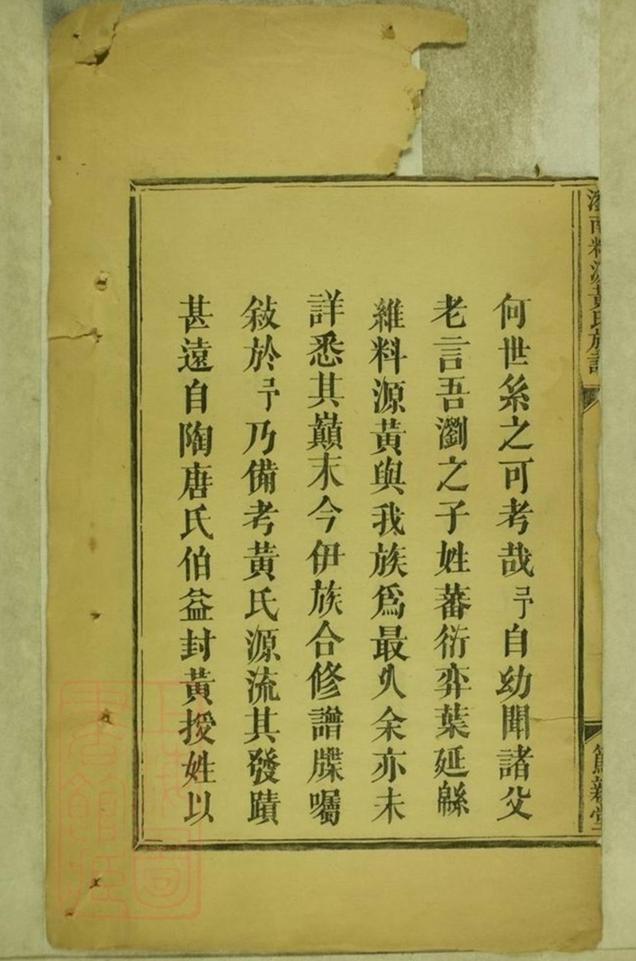 瀏南料源黃氏族譜
篤親堂
何世系之可考哉予自幼聞諸父
老言吾瀏之子姓蕃衍弈葉延緜
維料源黃與我族為最久余亦未
詳悉其巔末今伊族合修譜牒囑
敍於予乃備考黃氏源流其發蹟
甚遠自陶唐氏伯益封黃授姓以